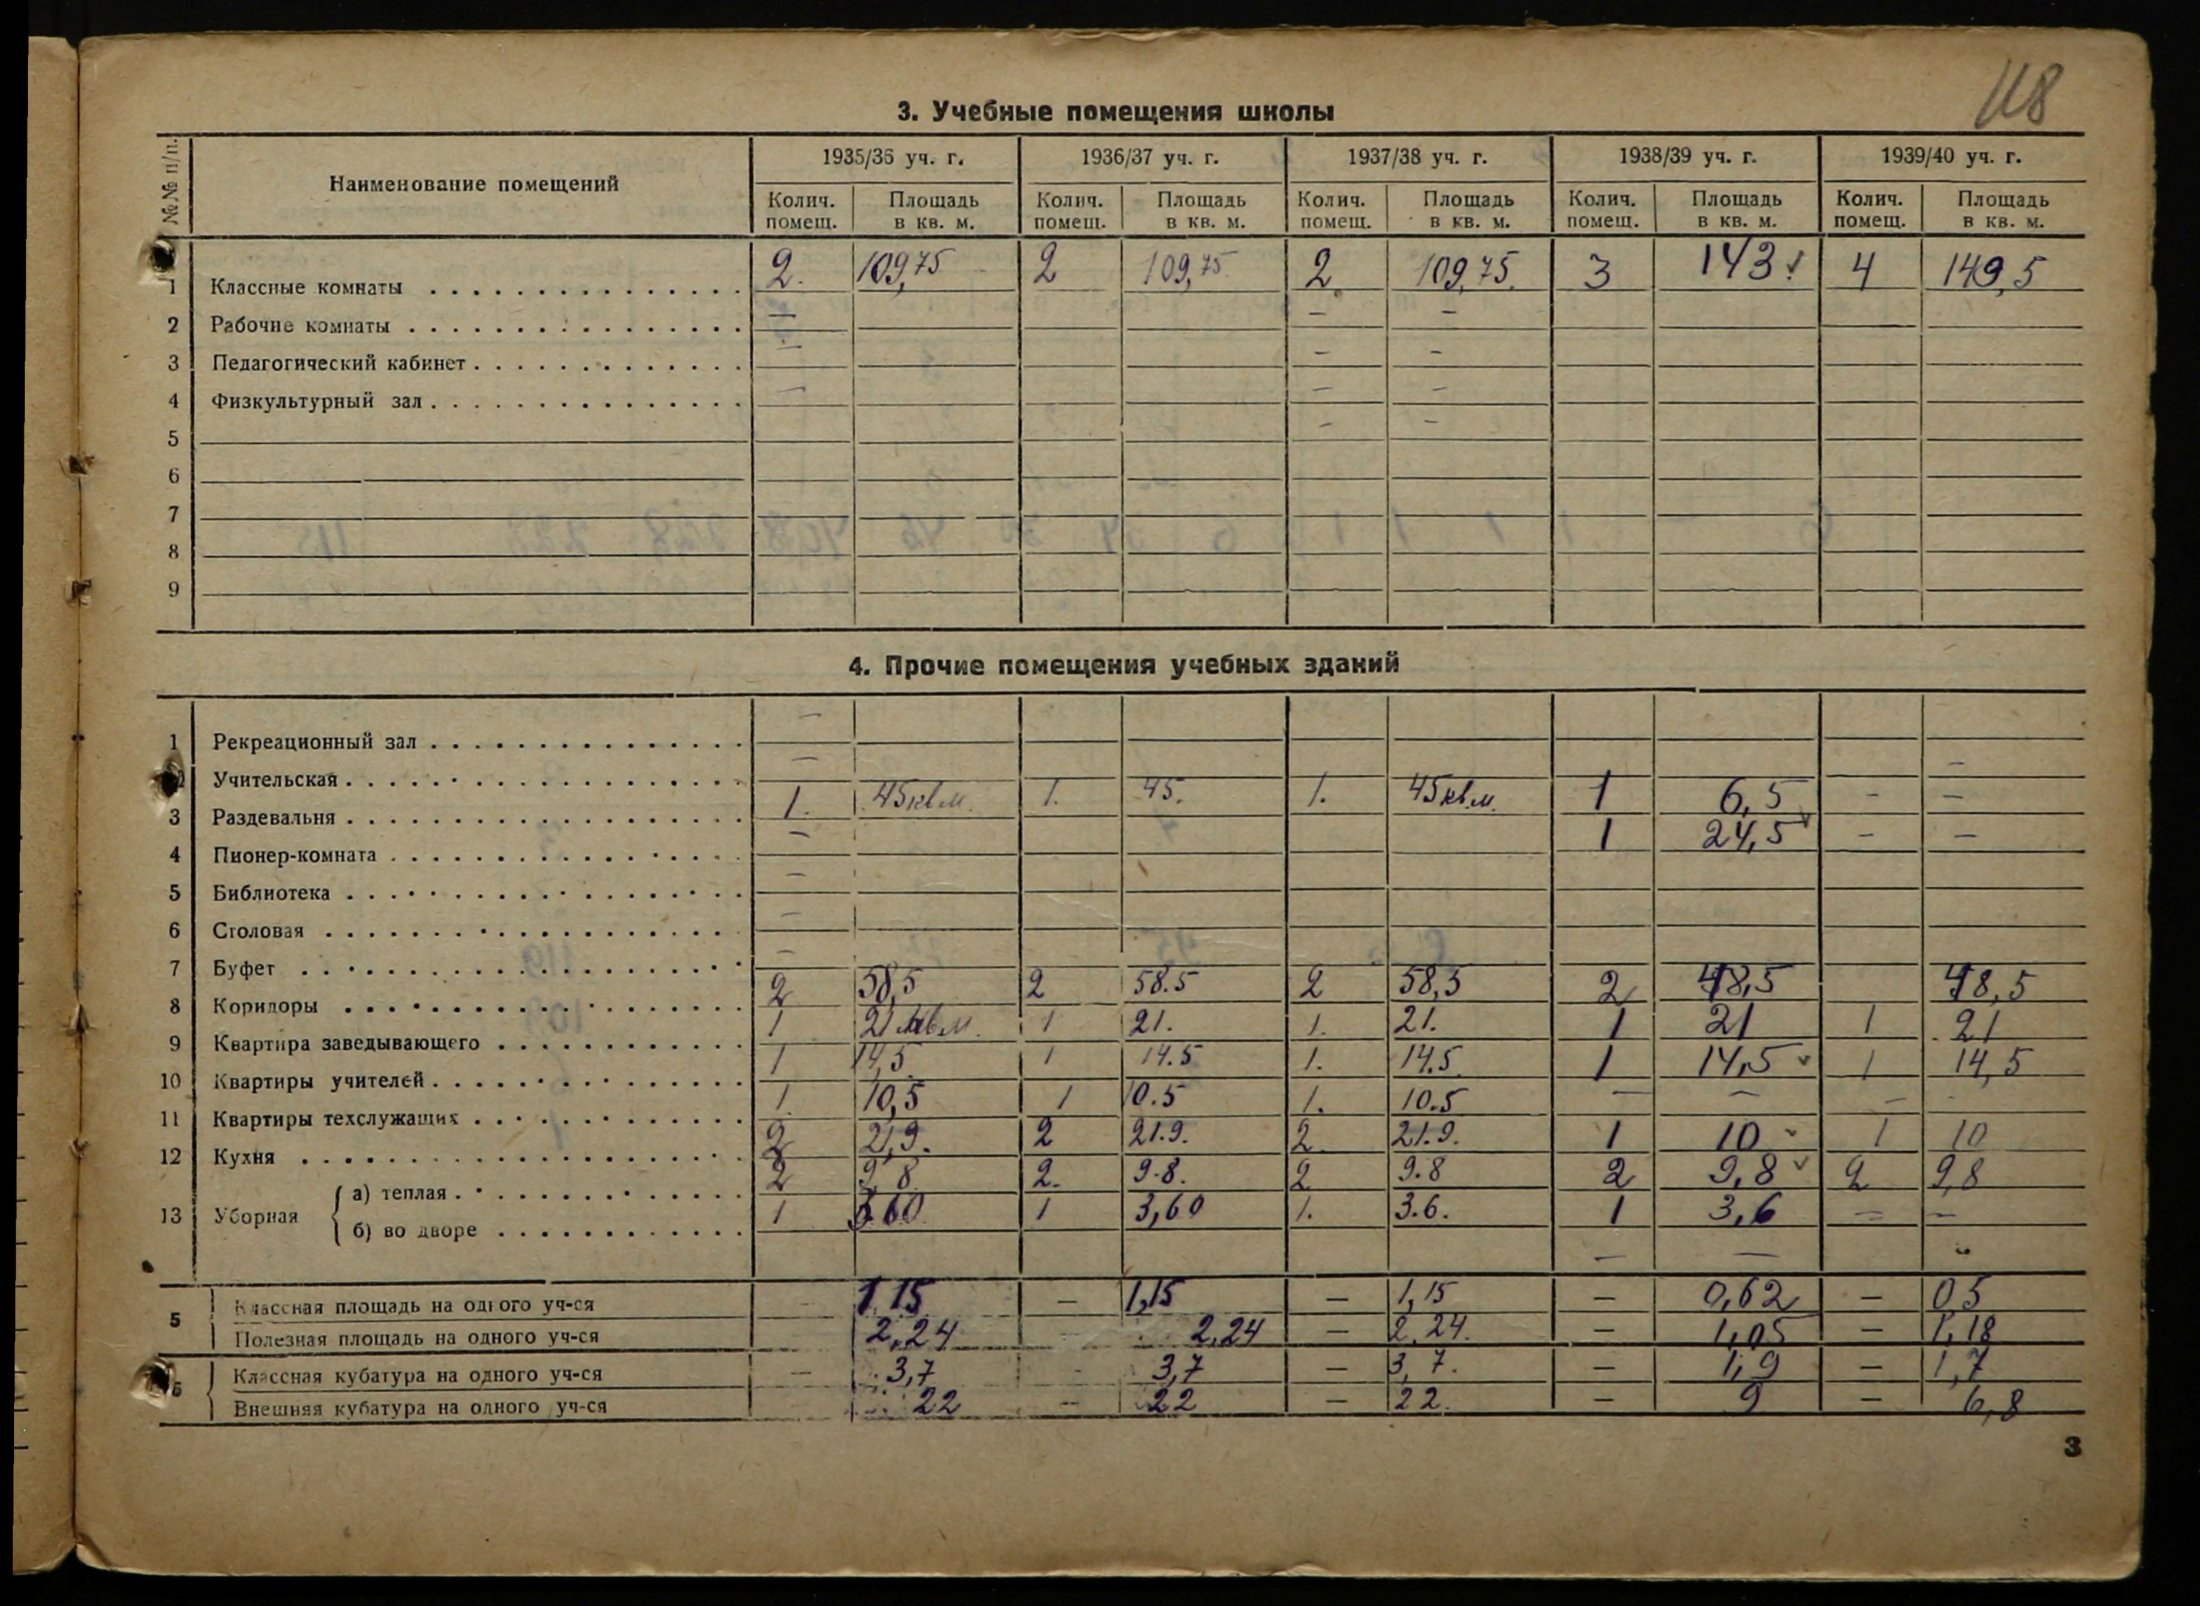 118
3. Учебные помещения школы
№№ п/п. Наименование помещений 1935/36 уч. г. 1936/37 уч. г. 1937/38 уч. г. 1938/39 уч. г. 1939/40 уч. г.
Колич. помещ. Площадь в кв. м. Колич. помещ. Площадь в кв. м. Колич. помещ. Площадь в кв. м. Колич. помещ. Площадь в кв. м. Колич. помещ. Площадь в кв. м.
1 Классные комнаты 2. 109,75 2 109,75 2 109,75. 3 143 4 149,5
2 Рабочие комнаты — — —
3 Педагогический кабинет — — —
4 Физкультурный зал — — —
5 — —
6
7
8
9
4. Прочие помещения учебных зданий
1 Рекреационный зал —
2 Учительская — —
3 Раздевальня 1. 45 кв.м. 1. 45. 1. 45 кв.м. 1 6,5 — —
4 Пионер-комната — 1 24,5 — —
5 Библиотека —
6 Столовая —
7 Буфет —
8 Коридоры 2 58,5 2 58.5 2 58,5 2 48,5 48,5
9 Квартира заведывающего 1 21 кв.м. 1 21. 1. 21. 1 21 1 21
10 Квартиры учителей 1 14,5 1 14.5 1. 14.5. 1 14,5 1 14,5
11 Квартиры техслужащих 1. 10,5 1 10.5 1. 10.5 — — — -
12 Кухня 2 21,9. 2 21.9. 2. 21.9. 1 10 1 10
13 Уборная а) теплая 2 9,8 2. 9.8. 2 9.8 2 9,8 2 9,8
б) во дворе 1 3,60 1 3,60 1. 3.6. 1 3,6 — —
— —
5 Классная площадь на одного уч-ся — 1,15 — 1,15 — 1,15 — 0,62 — 0 5
Полезная площадь на одного уч-ся 2,24 2,24 — 2,24. — 1,05 — 1,18
6 Классная кубатура на одного уч-ся — 3,7 - 3,7 — 3,7. — 1,9 — 1,7
Внешняя кубатура на одного уч-ся 22 — 22 — 22. — 9 — 6,8
3